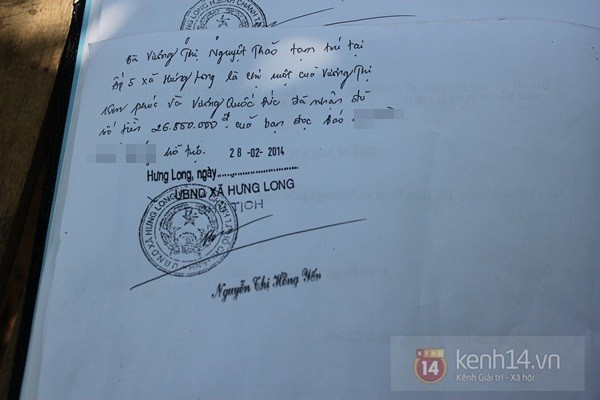 HƯNG LONG H.BÌNH CHÁNH
Bà Vương Thị Nguyệt Thảo tạm trú tại
Ấp 5 xã Hưng Long là chị ruột của Vương Thị
Kim Phúc và Vương Quốc Đức đã nhận đủ
số tiền 26.850.000đ của bạn đọc báo
hỗ trợ.
28-02-2014
Hưng Long, ngày
UBND XÃ HƯNG LONG
TỊCH
U.B.N.D XÃ HƯNG LONG
Nguyễn Thị Hồng Yến
KÊNH 14
kenh14.vn
Kênh Giải trí - Xã hội